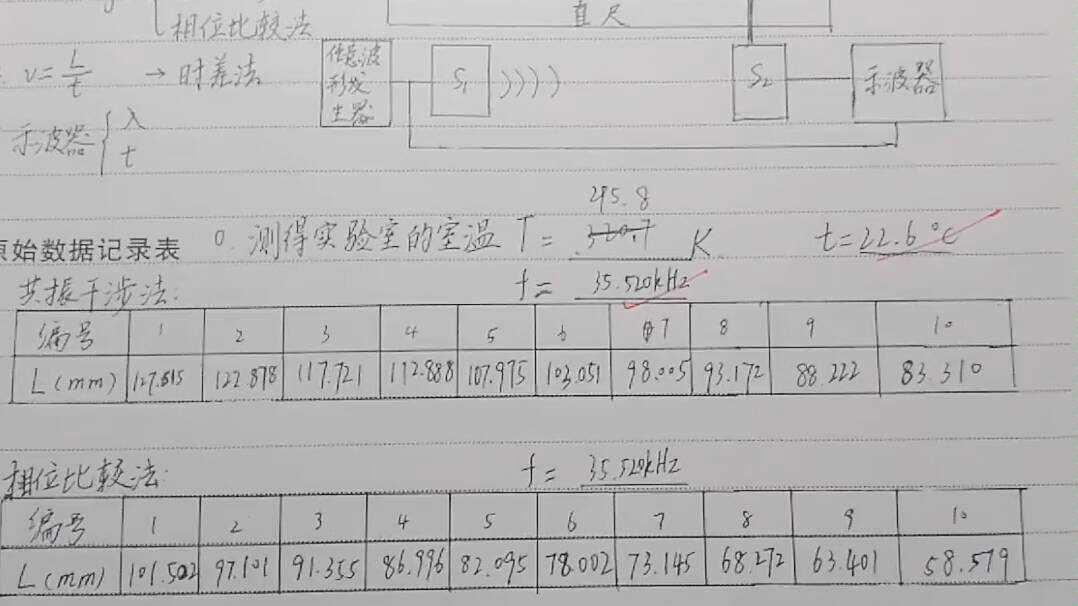 相位比较法
直尺
v=L/t → 时差法
任意波形发生器
S₁
))))
S₂
示波器
示波器 { λ
t
原始数据记录表 0. 测得实验室的室温 T= 295.8 320.7 K t=22.6℃
共振干涉法: f= 35.520kHz
编号 1 2 3 4 5 6 7 8 9 10
L(mm) 127.615 122.878 117.721 112.888 107.975 103.051 98.005 93.172 88.222 83.310
相位比较法: f= 35.520kHz
编号 1 2 3 4 5 6 7 8 9 10
L(mm) 101.502 97.101 91.355 86.996 82.095 78.002 73.145 68.272 63.401 58.579